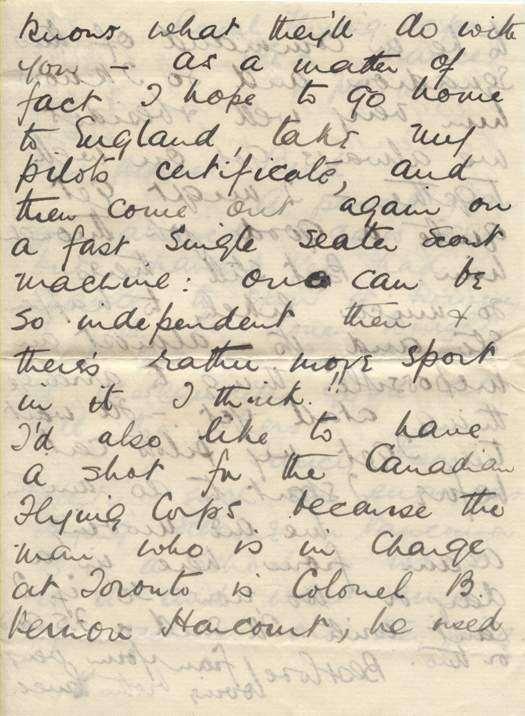 knows what they'll do with
you – as a matter of
fact I hope to go home
to England, take my
pilots certificate, and
then come out again on
a fast single seater scout
machine: one can be
so independent then &
there's rather more sport
in it I think.!!
I'd also like to have
a shot for the Canadian
Flying Corps because the
man who is in charge
at Toronto is Colonel B.
Vernon Harcourt, he used